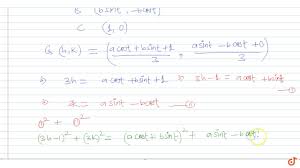 B (bsint, -bcost)
C (1, 0)
G (h, k) = (acost + bsint + 1 / 3 , asint - bcost + 0 / 3)
3h = acost + bsint + 1 ⇒ 3h - 1 = acost + bsint
3k = asint - bcost
①² + ②²
(3h-1)² + (3k)² = (acost + bsint)² + asint - bcost
doubtnut